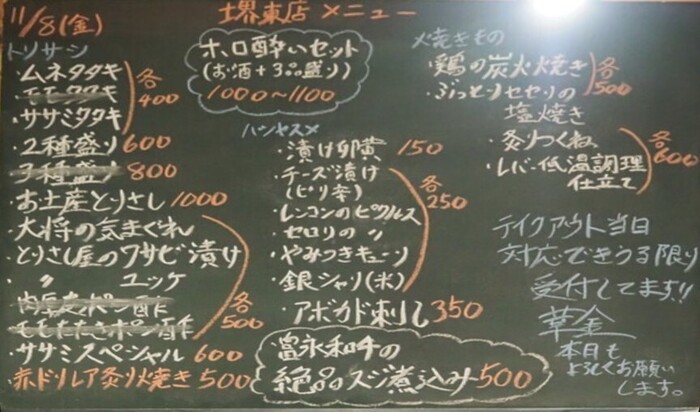 11/8(金)
堺東店 メニュー
トリサシ
・ムネタタキ
・モモタタキ
・ササミタタキ
各400
・2種盛り 600
・3種盛り 800
・お土産とりさし 1000
・大将の気まぐれ
・とりさし屋のワサビ漬け
・〃 ユッケ
ポン酢
・ももたたきポン酢
各500
・ササミスペシャル 600
・赤ドリレア炙り焼き 500
ホロ酔いセット
(お酒+3品盛り)
1000~1100
・漬け卵黄 150
・チーズ漬け
(ピリ辛)
・レンコンのピクルス
・セロリの 〃
・やみつきキューリ
・銀シャリ(米)
各250
・アボカド刺し 350
・富永和牛の
絶品スジ煮込み 500
焼きもの
・鶏の炭火焼き
・ぷりっとりセセリの
塩焼き
各500
・炙りつくね
・レバー低温調理
仕立て
各600
テイクアウト当日
対応できうる限り
受付してます!!
華金
本日も
よろしくお願い
します。